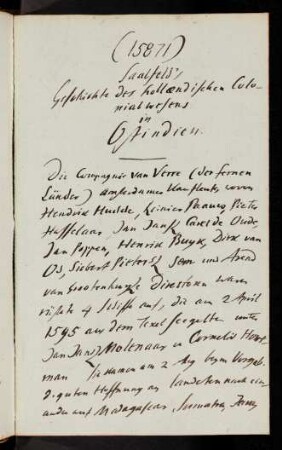 (1587)
Saalfeld's
Geschichte des hollændischen Colo-
nialwesens
in
Ostindien.
Die Compagnie van Verre (der fernen
Länder) amsterdamer Kaufleute waren
Hendrik Hudde, Reinier Paauw, Pieter
Hasselaar, Jan Jansz Carel de Oude,
Jan Poppen, Henrik Buyk, Dirk van
Os, Siebert Pietersz Sem und Arend
van Grootenhuyze Directoren waren
rüstete 4 Schiffe auf, die am 2 April
1595 aus dem Texel seegelte unter
Jan Jansz Molenaar u Cornelis Hout-
man kamen am 2 Aug beym Vorgeb.
d. guten Hoffnung an landeten nach ein
ander auf Madagascar, Sumatra, Java